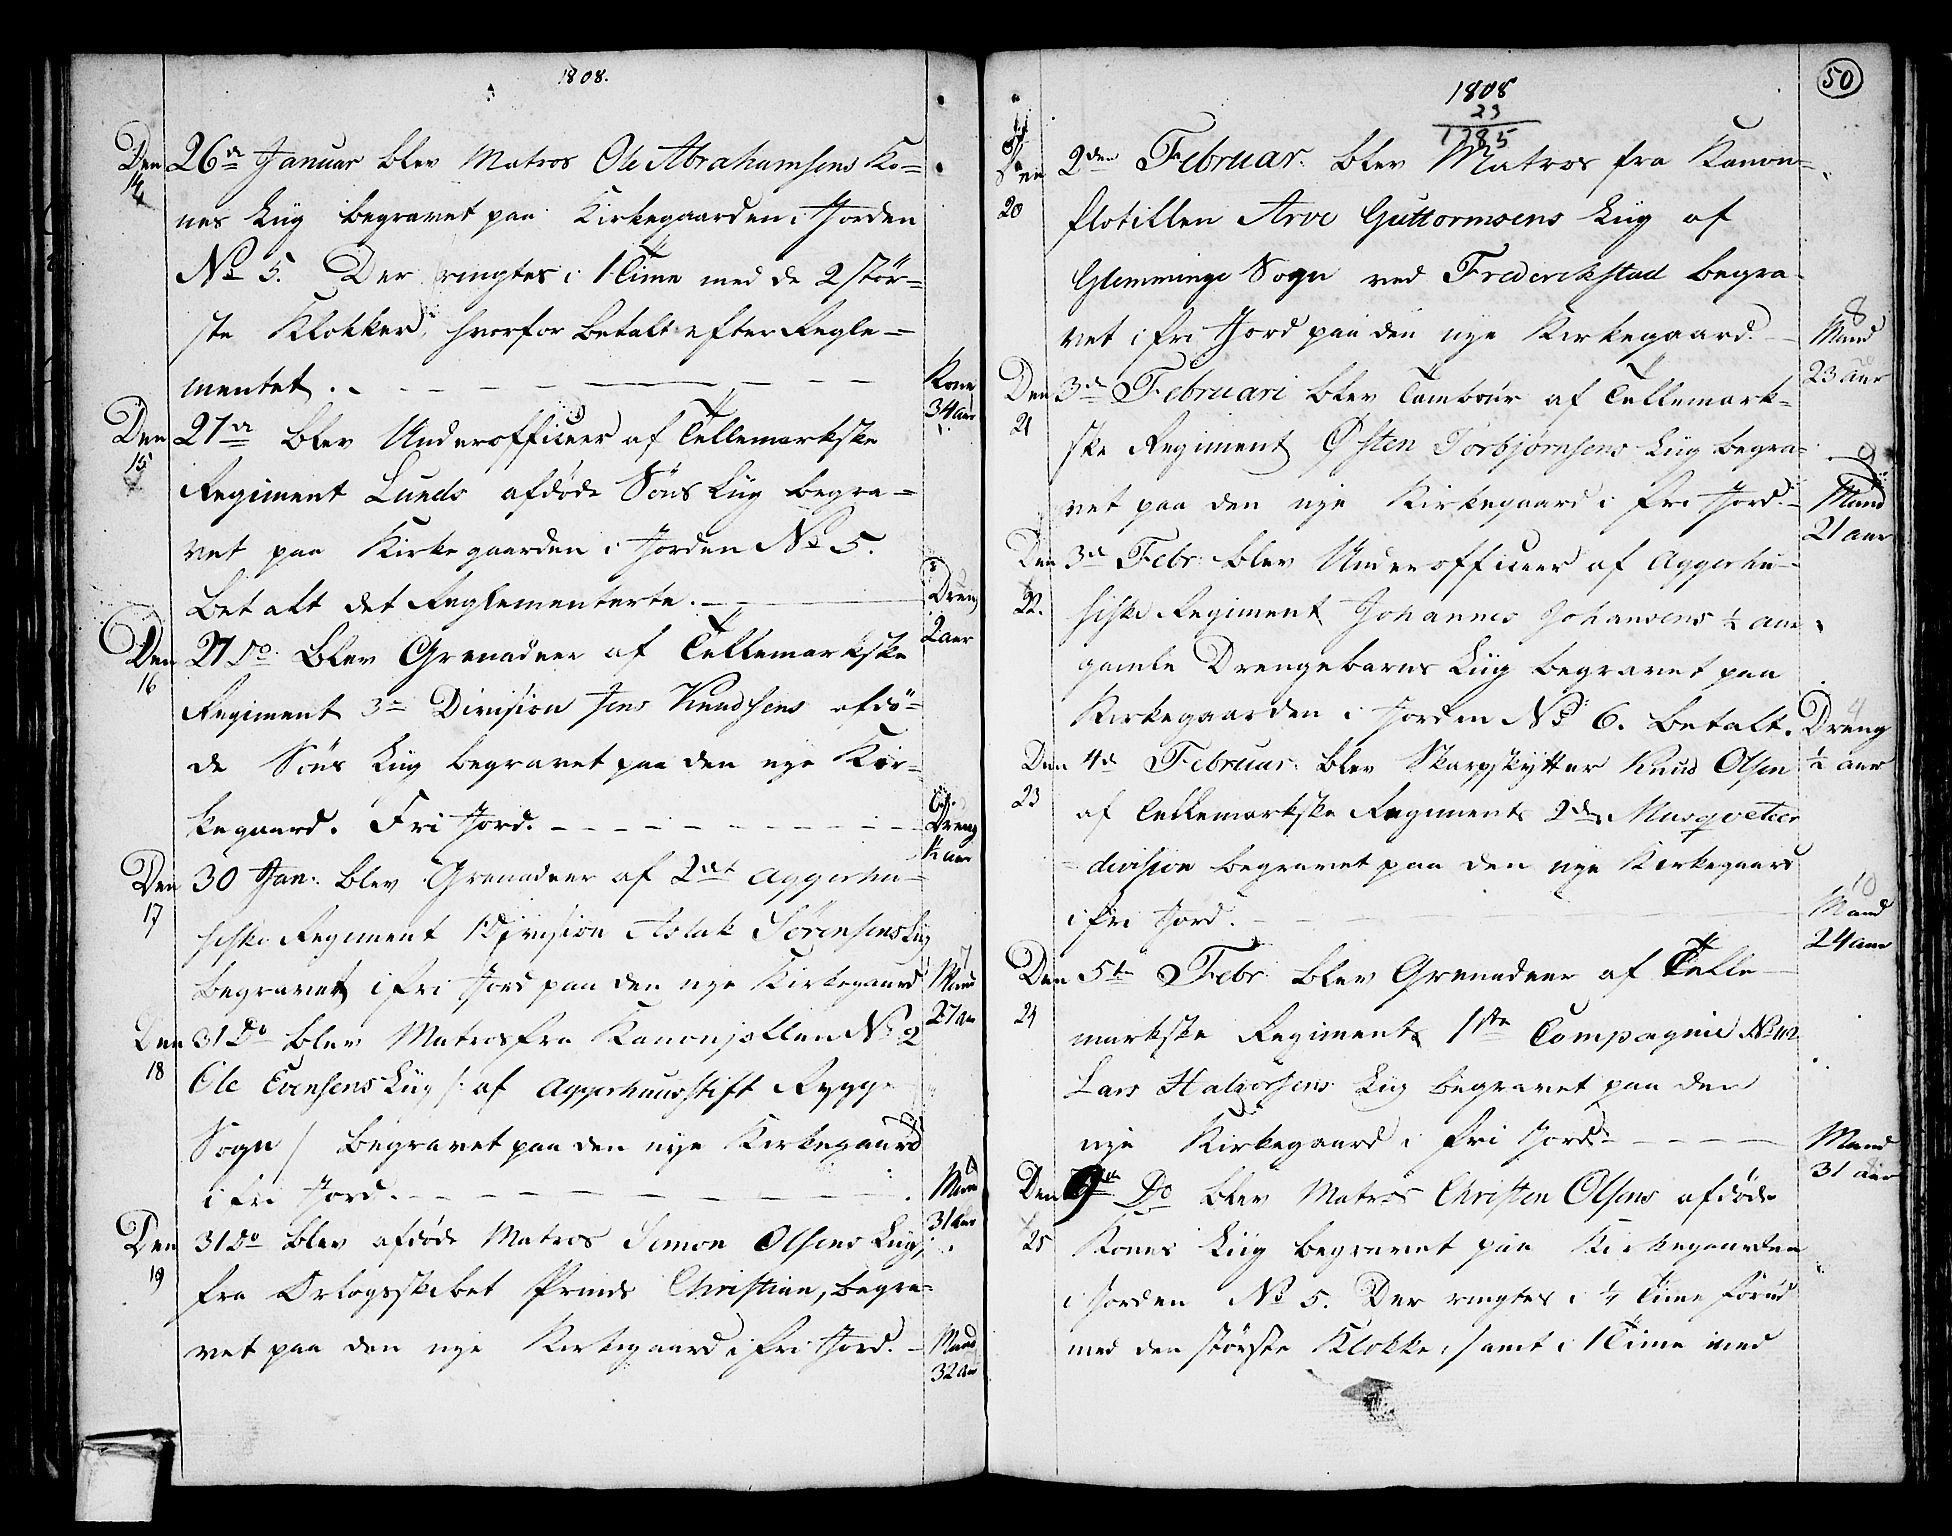 1808.
Den 26de Januar blev Matros Ole Abrahamsens Ko=
14
nes Liig begravet paa Kirkegaarden i Jorden
No 5. Der ringtes i 1 Time med de 2 stör=
ste Klokker, hvorfor betalt efter Regle=
mentet. Kone
34 aar
Den 27de blev Underofficeer af Tellemarkske
15
Regiment Lunds afdøde Söns Liig begra=
vet paa Kirkegaarden i Jorden No 5.
Betalt det Reglementerte. Dreng
2 aar
Den 27 Do blev Grenadeer af Tellemarkske
16
Regiment 3de Division Jens Knudsens afdö=
de Söns Liig begravet paa den nye Kir=
kegaard. Fri Jord. Dreng
½ aar
Den 30 Jan: blev Grenadeer af 2det Aggershu=
17
siske Regiment 1 Division Aslak Sörensens Liig
begravet i fri Jord paa den nye Kirkegaard
7
Mand
27 aar
Den 31 Do blev Matros fra Kanonjollen No 2
18
Ole Evensens Liig /: af Aggershuusstift Rygge
Sogn / begravet paa den nye Kirkegaard
i fri Jord. Mand
31 aar
Den 31 Do blev afdøde Matros Simon Olsens Liig,
19
fra Orlogsskibet Prinds Christian, begra=
vet paa den nye Kirkegaard i fri Jord. Mand
32 aar
50
1808
23
1785
Den 2den Februar. blev Matros fra Kanon=
20
flotillen Arve Guttormsens Liig af
Glemminge Sogn ved Frederikstad begra=
vet i fri Jord paa den nye Kirkegaard.
8
Mand
23 aar
Den 3de Februari blev Tambour af Tellemark=
21
ske Regiment Østen Torbjørnsens Liig begra=
vet paa den nye Kirkegaard i fri Jord.
9
Mand
21 aar
Den 3de Febr: blev Underofficeer af Aggershu=
22.
siske Regiment Johannes Johansens ½ aar
gamle Drengebarns Liig begravet paa
Kirkegaarden i Jorden No 6. betalt.
4
Dreng
½ aar
Den 4de Februar. blev Skarpskytter Knud Olsen
23
af Tellemarkske Regiments 2den Musqveteer
division begravet paa den nye Kirkegaard
i fri Jord.
10
Mand
24 aar
Den 5te Febr blev Grenadeer af Telle=
24
markske Regiments 1ste Compagnie
Lars Halvorsens Liig begravet paa den
nye Kirkegaard i fri Jord. Mand
31 aar
Den 9de Do blev Matros Christen Olsens afdøde
25
Kones Liig begravet paa Kirkegaarden
i Jorden No 5. Der ringtes i ½ Time forud
med den störste Klokke, samt i 1 Time med